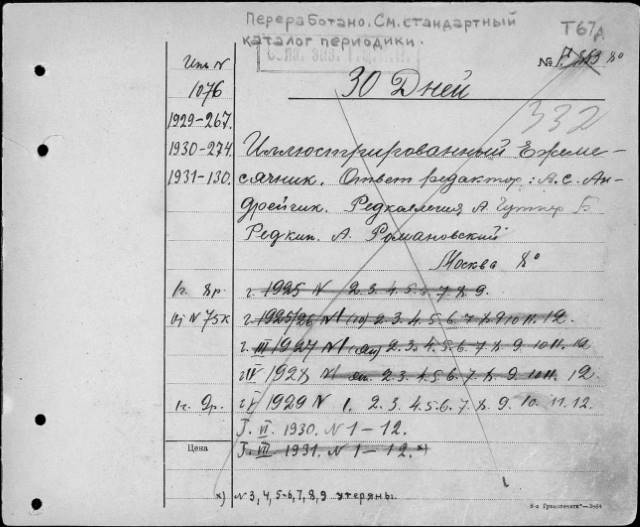 Переработано. См. стандартный
каталог периодики.
Т67А
№
80
Инв N
1076
30 Дней
332
1929-267.
1930-274.
1931-130.
Иллюстрированный Ежеме-
сячник. Ответ редактор: А. С. Ан-
дрейчик. Редколлегия, А. Гутнер Б
Редкин. А. Романовский
Москва 8°
г. 1925 N 2. 3. 4. 5. 6. 7. 8. 9.
г. 1925/26 N 1 (10) 2. 3. 4. 5. 6. 7. 8. 9 10 11. 12.
N 75к
г. III 1927 N 1 2. 3. 4. 5. 6. 7. 8. 9. 10 11. 12
г IV 1928 N 2. 3. 4. 5. 6. 7. 8. 9. 10 11. 12
г V 1929 N 1. 2. 3. 4. 5. 6. 7. 8. 9. 10. 11. 12.
Г. VI. 1930. N 1-12.
Цена
Г. VII. 1931. N 1-12. х)
х) N 3, 4, 5-6, 7, 8, 9 утеряны.